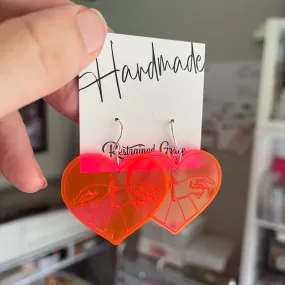 Handmade
Restrained Grace